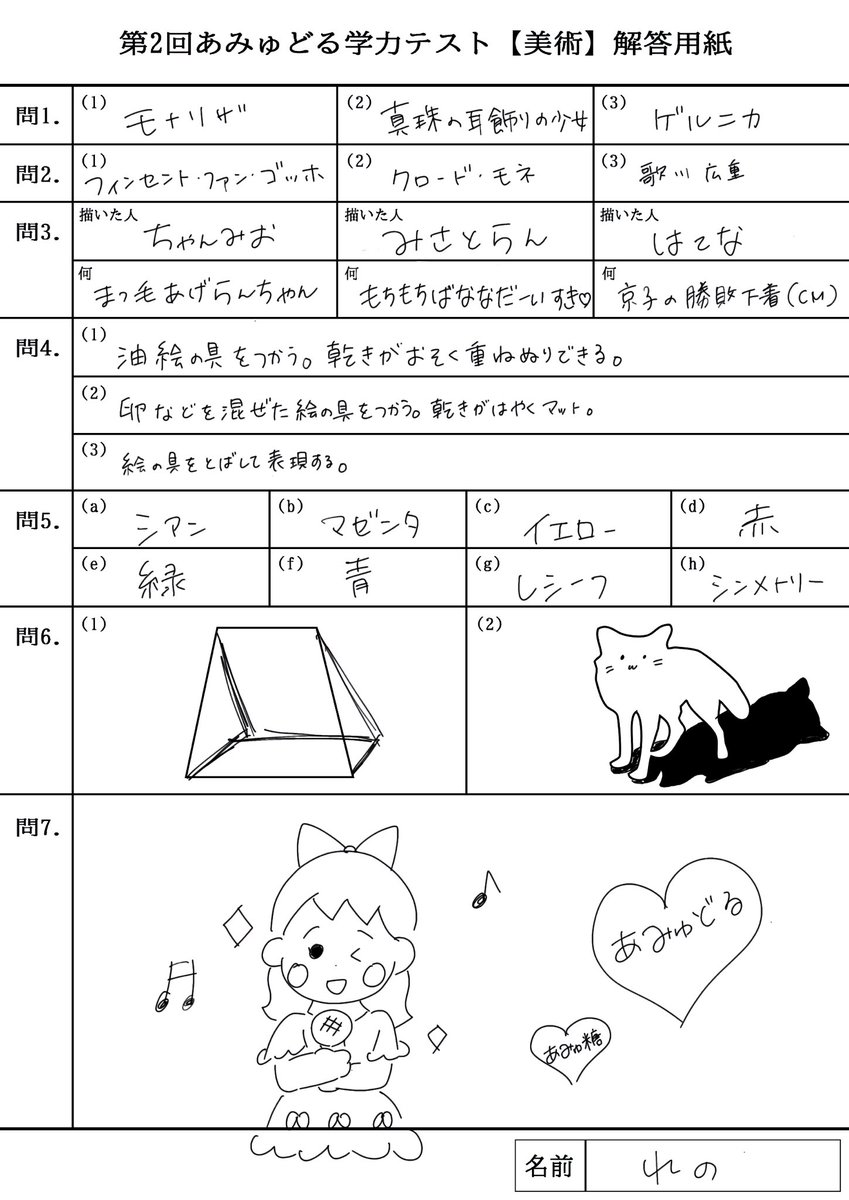 第2回あみゅどる学力テスト【美術】解答用紙
問1.
(1) モナリザ
(2) 真珠の耳飾りの少女
(3) ゲルニカ
問2.
(1) フィンセント・ファン・ゴッホ
(2) クロード・モネ
(3) 歌川広重
問3.
描いた人 ちゃんみお
描いた人 みさとらん
描いた人 はてな
何 まつ毛あげらんちゃん
何 もちもちばななだーいすき♡
何 京子の勝敗下着(CM)
問4.
(1) 油絵の具をつかう。乾きがおそく重ねぬりできる。
(2) 卵などを混ぜた絵の具をつかう。乾きがはやくマット。
(3) 絵の具をとばして表現する。
問5.
(a) シアン
(b) マゼンタ
(c) イエロー
(d) 赤
(e) 緑
(f) 青
(g) レシーフ
(h) シンメトリー
問6.
(1)
(2)
問7.
あみゅどる
あみゅ糖
名前 れの